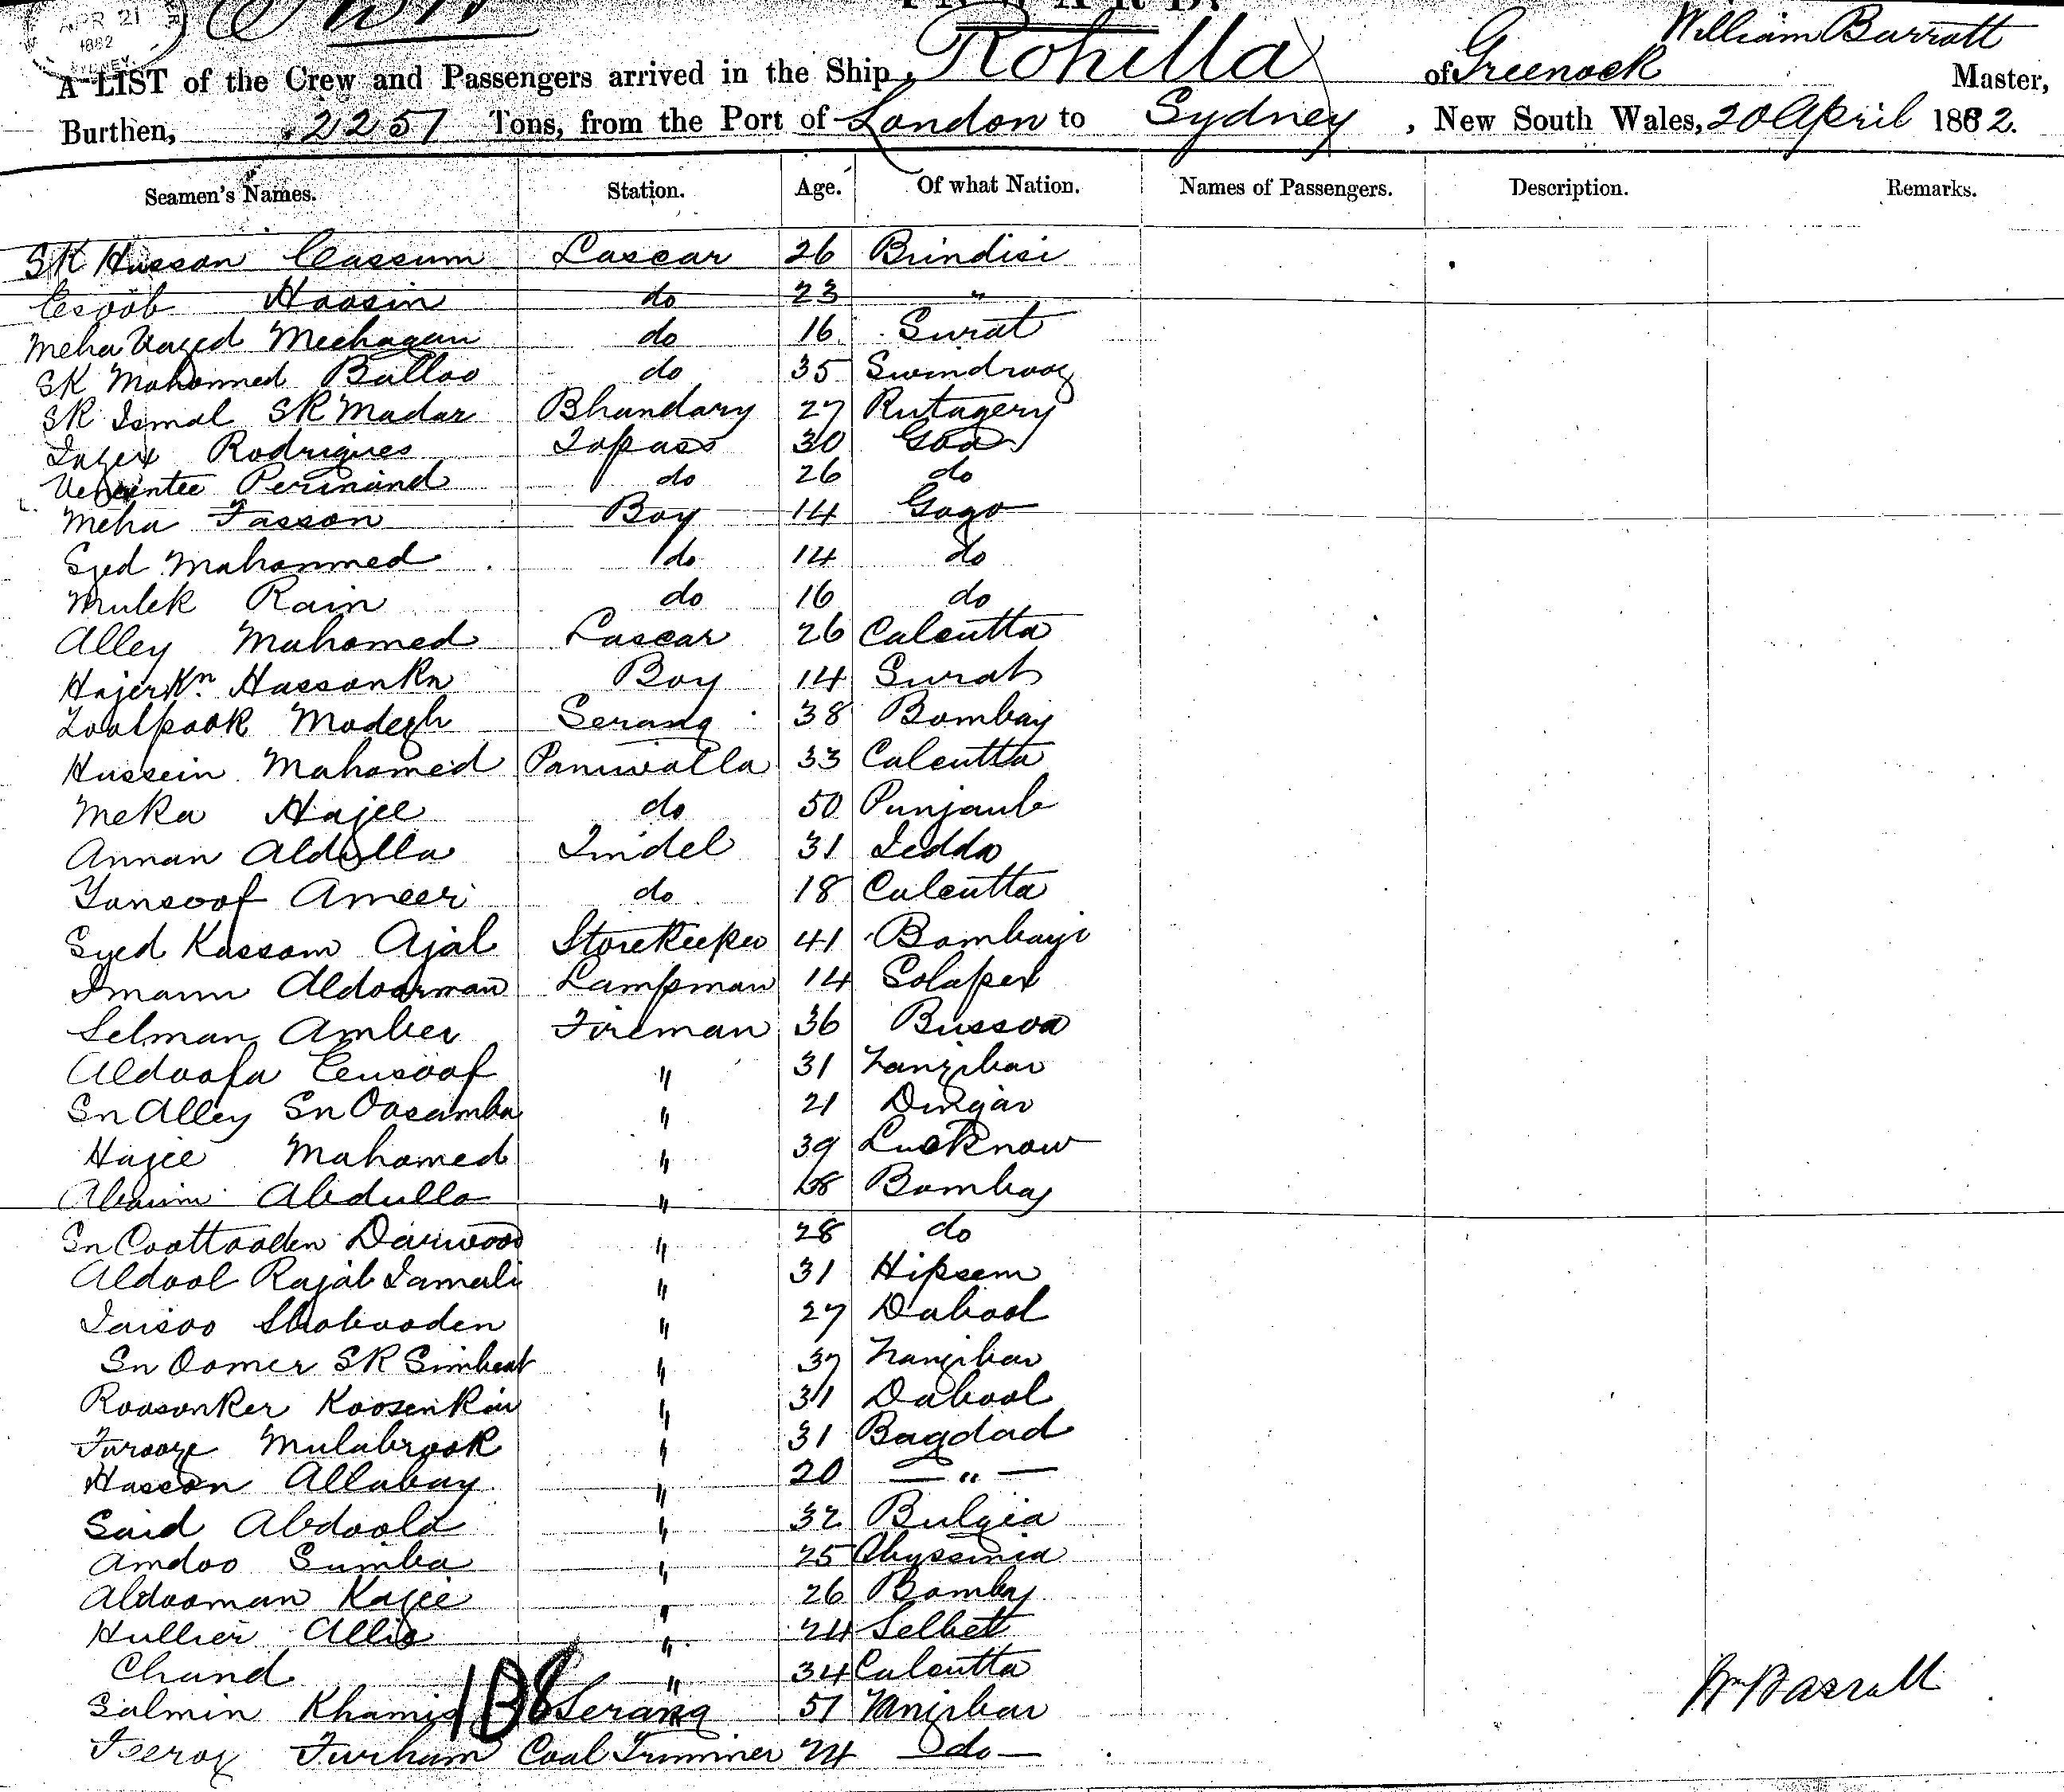 APR 21
1882
SYDNEY
A LIST of the Crew and Passengers arrived in the Ship, Rohilla of Greenock William Barratt Master,
Burthen, 2257 Tons, from the Port of London to Sydney, New South Wales, 20 April 1882.
Seamen's Names. Station. Age. Of what Nation. Names of Passengers. Description. Remarks.
SK Hussan Cassum Lascar 26 Brindisi
Esoob Hoosin do 23 "
Meha Meehagan do 16 Surat
SK Mahommed Balloo do 35 Swindroog
SK Ismal SK Madar Bhandary 27 Rutagery
Rodrigues Topass 30 Goa
Perinand do 26 do
Meha Fasson Boy 14 Gogo
Syed Mahommed do 14 do
Mulek Rain do 16 do
Alley Mahomed Lascar 26 Calcutta
HajerKn HassonKn Boy 14 Surat
Modegh Serang 38 Bombay
Hussein Mahomed Paniwalla 33 Calcutta
Meka Hajee do 50 Punjaub
Annan Abdulla Tindel 31 Jedda
Yonsoof Ameer do 18 Calcutta
Syed Kassom Ajal Storekeeper 41 Bombay
Imaum Abdoorman Lampman 14 Solaper
Selman Amber Fireman 36 Bussoa
Abdoola Eusoof " 31 Zanzibar
Sn Alley Sn Oosamba " 21 Dingar
Hajee Mahomed " 39 Lucknow
Abdulla " 28 Bombay
Sn Coottooden Dawood " 28 do
Abdool Rajab Jamali " 31 Hipsem
Shabooden " 27 Dabool
Sn Oomer SK Simbeat " 37 Zanzibar
Roosonker Koosenkin " 31 Dabool
Furooze Mulabrook " 31 Bagdad
Hasson Allabay " 20 — " —
Said Abdoola " 32 Bulgia
Amdoo Sumba " 25 Abyssinia
Abdooman Kajee " 26 Bombay
Hullier Allie " 24 Selhet
Chand " 34 Calcutta
Salmin Khamis 108 Serang 51 Zanzibar
Wm Barratt
Feroz Furham Coal Trimmer 24 do